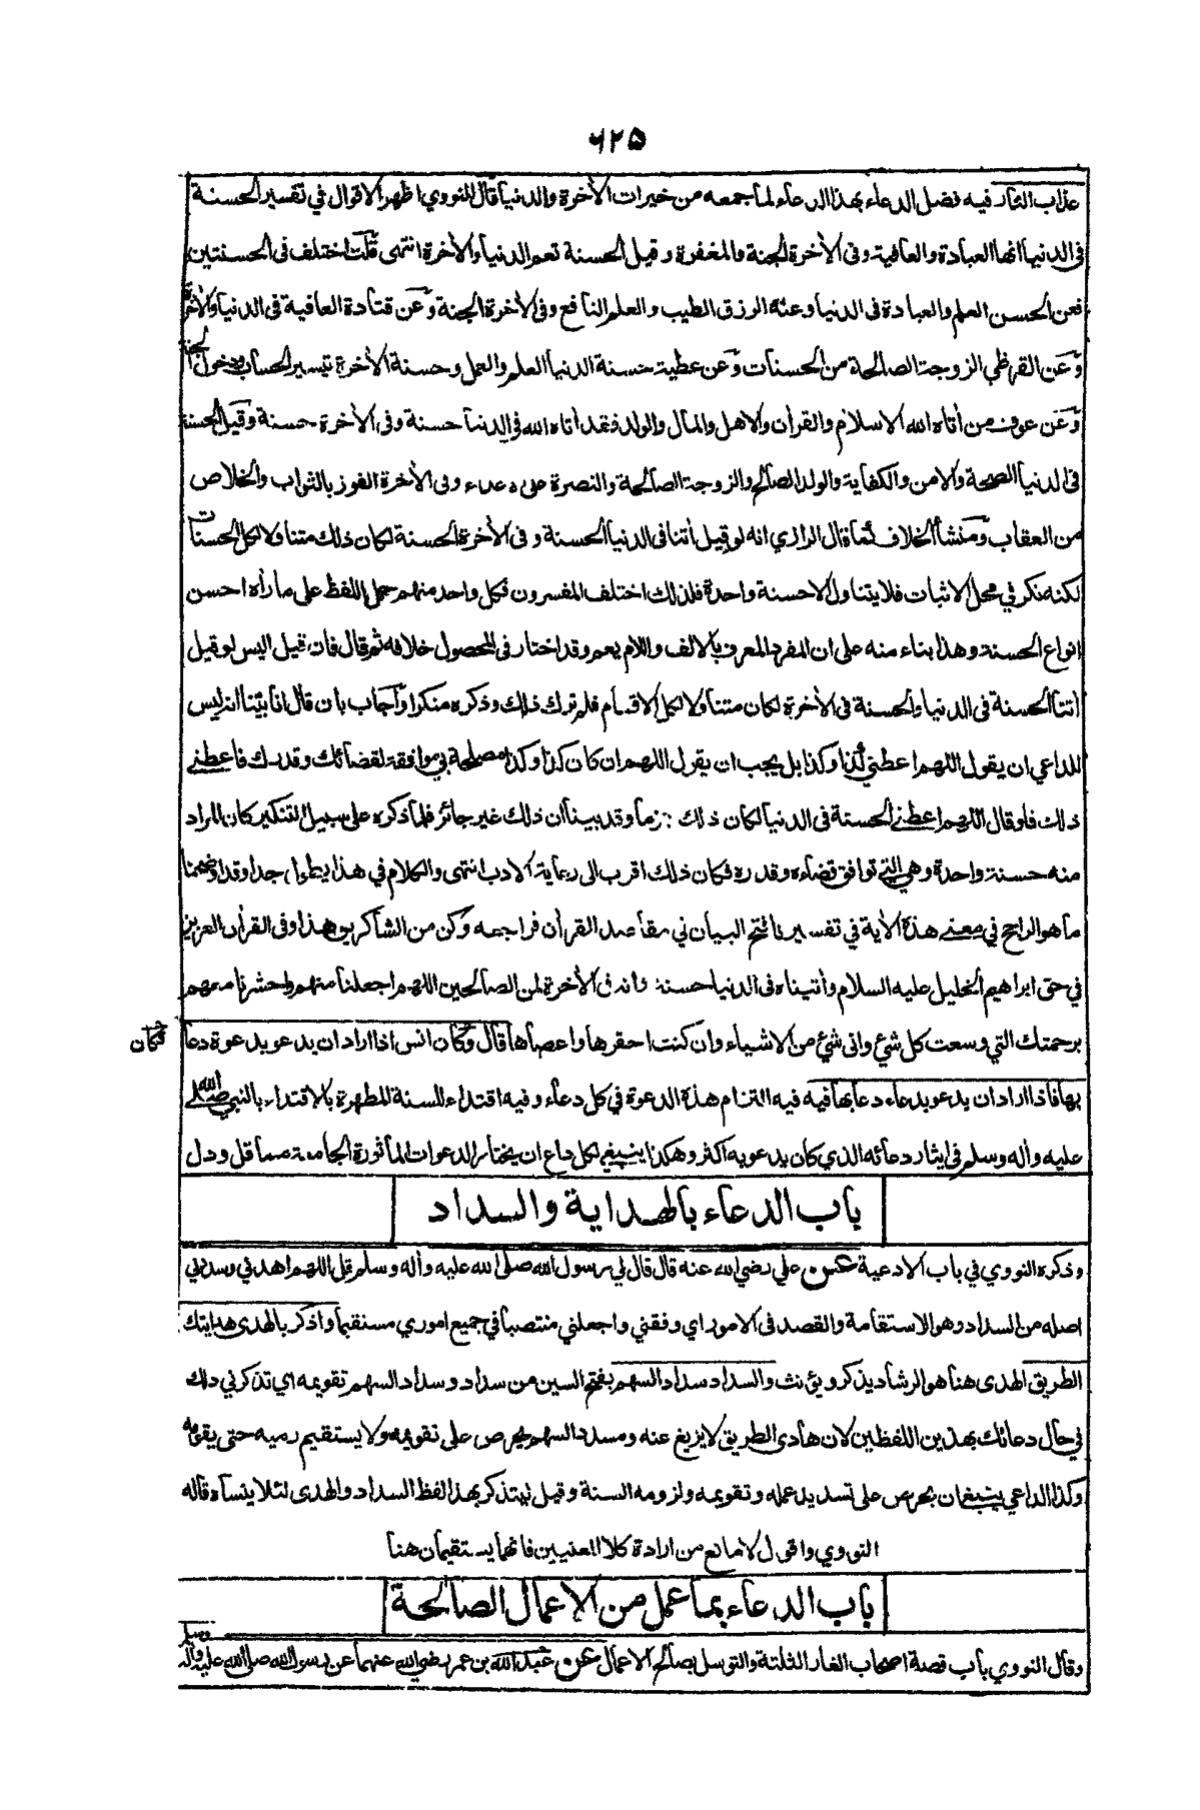 ٦٢٥
عذاب النار فيه فضل الدعاء بهذا الدعاء لما جمعه من خيرات الأخرة والدنيا قال النووي اظهر الاقوال في تفسير الحسنة
فى الدنيا انها العبادة والعافية وفى الأخرة الجنة والمغفرة وقيل الحسنة تعم الدنيا والأخرة انتهى قلت اختلف فى الحسنتين
فعن الحسن العلم والعبادة فى الدنيا وعنه الرزق الطيب والعلم النافع وفى الأخرة الجنة وعن قتادة العافية فى الدنيا والأخرة
وعن القرظي الزوجة الصالحة من الحسنات وعن عطية حسنة الدنيا العلم والعمل وحسنة الأخرة تيسير الحساب ودخول الجنة
وعن عوف من أتاه الله الاسلام والقرأن والاهل والمال والولد فقد أتاه الله فى الدنيا حسنة وفى الأخرة حسنة وقيل الحسنة
فى الدنيا الصحة والامن والكفاية والولد الصالح والزوجة الصالحة والنصرة على الاعداء وفى الأخرة الفوز بالثواب والخلاص
من العقاب ومنشأ الخلاف كما قال الرازي انه لو قيل أتنا فى الدنيا الحسنة وفى الأخرة الحسنة لكان ذلك متناولا لكل الحسنات
لكنه نكر في محل الاثبات فلا يتناول الا حسنة واحدة فلذلك اختلف المفسرون فكل واحد منهم حمل اللفظ على ما رأه احسن
انواع الحسنة وهذا بناء منه على ان المفرد المعرف بالالف واللام يعم وقد اختار فى المحصول خلافه ثم قال فان قيل اليس لو قيل
اتنا الحسنة فى الدنيا والحسنة فى الأخرة لكان متناولا لكل الاقسام فلم ترك ذلك وذكره منكرا واجاب بان قال انا بينا انه ليس
للداعي ان يقول اللهم اعطني كذا وكذا بل يجب ان يقول اللهم ان كان كذا وكذا مصلحة لي موافقة لقضائك وقدرك فاعطني
ذلك فلو قال اللهم اعطني الحسنة فى الدنيا لكان ذلك جزما وقد بينا ان ذلك غير جائز فلما ذكره على سبيل التنكير كان المراد
منه حسنة واحدة وهي التي توافق قضاءه وقدره فكان ذلك اقرب الى رعاية الادب انتهى والكلام في هذا يطول جدا وقد اوضحنا
ما هو الراجح في معنى هذه الأية في تفسيرنا فتح البيان في مقاصد القرأن فراجعه وكن من الشاكرين هذا وفى القرأن العزيز
في حق ابراهيم الخليل عليه السلام وأتيناه فى الدنيا حسنة وانه فى الأخرة لمن الصالحين اللهم اجعلنا منهم واحشرنا معهم
برحمتك التي وسعت كل شئ وانى شئ من الاشياء وان كنت احقرها واعصاها قال وكان انس اذا اراد ان يدعو بدعوة دعا
فكان
بها فاذا اراد ان يدعو بدعاء دعا بها فيه فيه التزام هذه الدعوة في كل دعاء وفيه اقتداء للسنة المطهرة بالاقتداء بالنبي صلى الله
عليه وأله وسلم فى ايثار دعائه الذي كان يدعو به اكثر وهكذا ينبغي لكل داع ان يختار الدعوات المأثورة الجامعة مما قل ودل
باب الدعاء بالهداية والسداد
وذكره النووي في باب الادعية عن علي رضي الله عنه قال قال لي رسول الله صلى الله عليه وأله وسلم قل اللهم اهدني وسددني
اصله من السداد وهو الاستقامة والقصد فى الامور اي وفقني واجعلني منتصبا في جميع اموري مستقيما واذكر بالهدى هدايتك
الطريق الهدى هنا هو الرشاد يذكر ويؤنث والسداد سداد السهم بفتح السين من سداد وسداد السهم تقويمه اي تذكر في ذلك
في حال دعائك بهذين اللفظين لان هادى الطريق لا يزيغ عنه ومسدد السهم يحرص على تقويمه ولا يستقيم رميه حتى يقومه
وكذا الداعي ينبغي ان يحرص على تسديد عمله وتقويمه ولزومه السنة وقيل ليتذكر بهذا لفظ السداد والهدى لئلا ينساه قاله
النووي واقول لا مانع من ارادة كلا المعنيين فانهما يستقيمان هنا
باب الدعاء بما عمل من الاعمال الصالحة
وقال النووي باب قصة اصحاب الغار الثلثة والتوسل بصالح الاعمال عن عبد الله بن عمر رضي الله عنهما عن رسول الله صلى الله عليه وأله وسلم